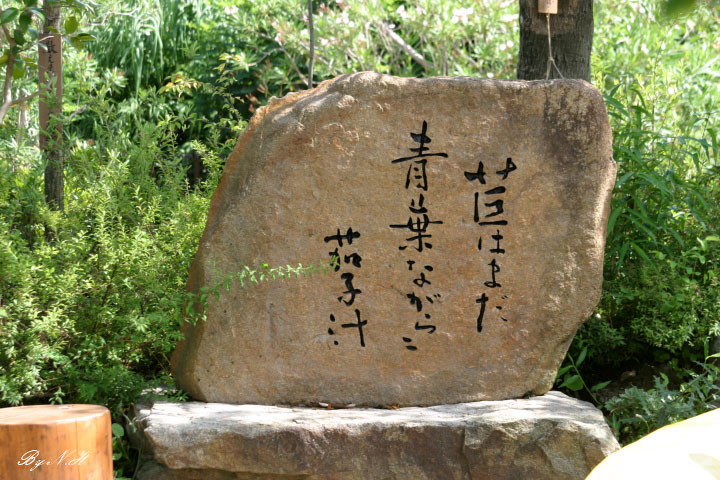 苣はまだ
青葉ながらニ
茄子汁
By N.H